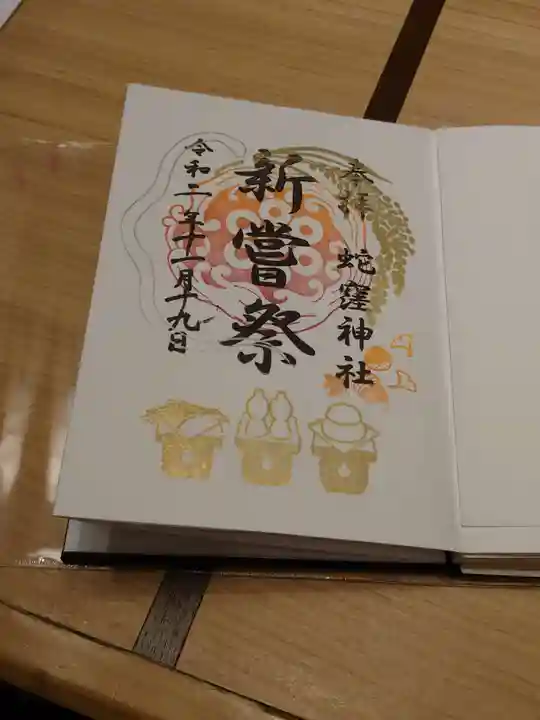 奉拝 蛇窪神社
新嘗祭
令和二年十一月十九日